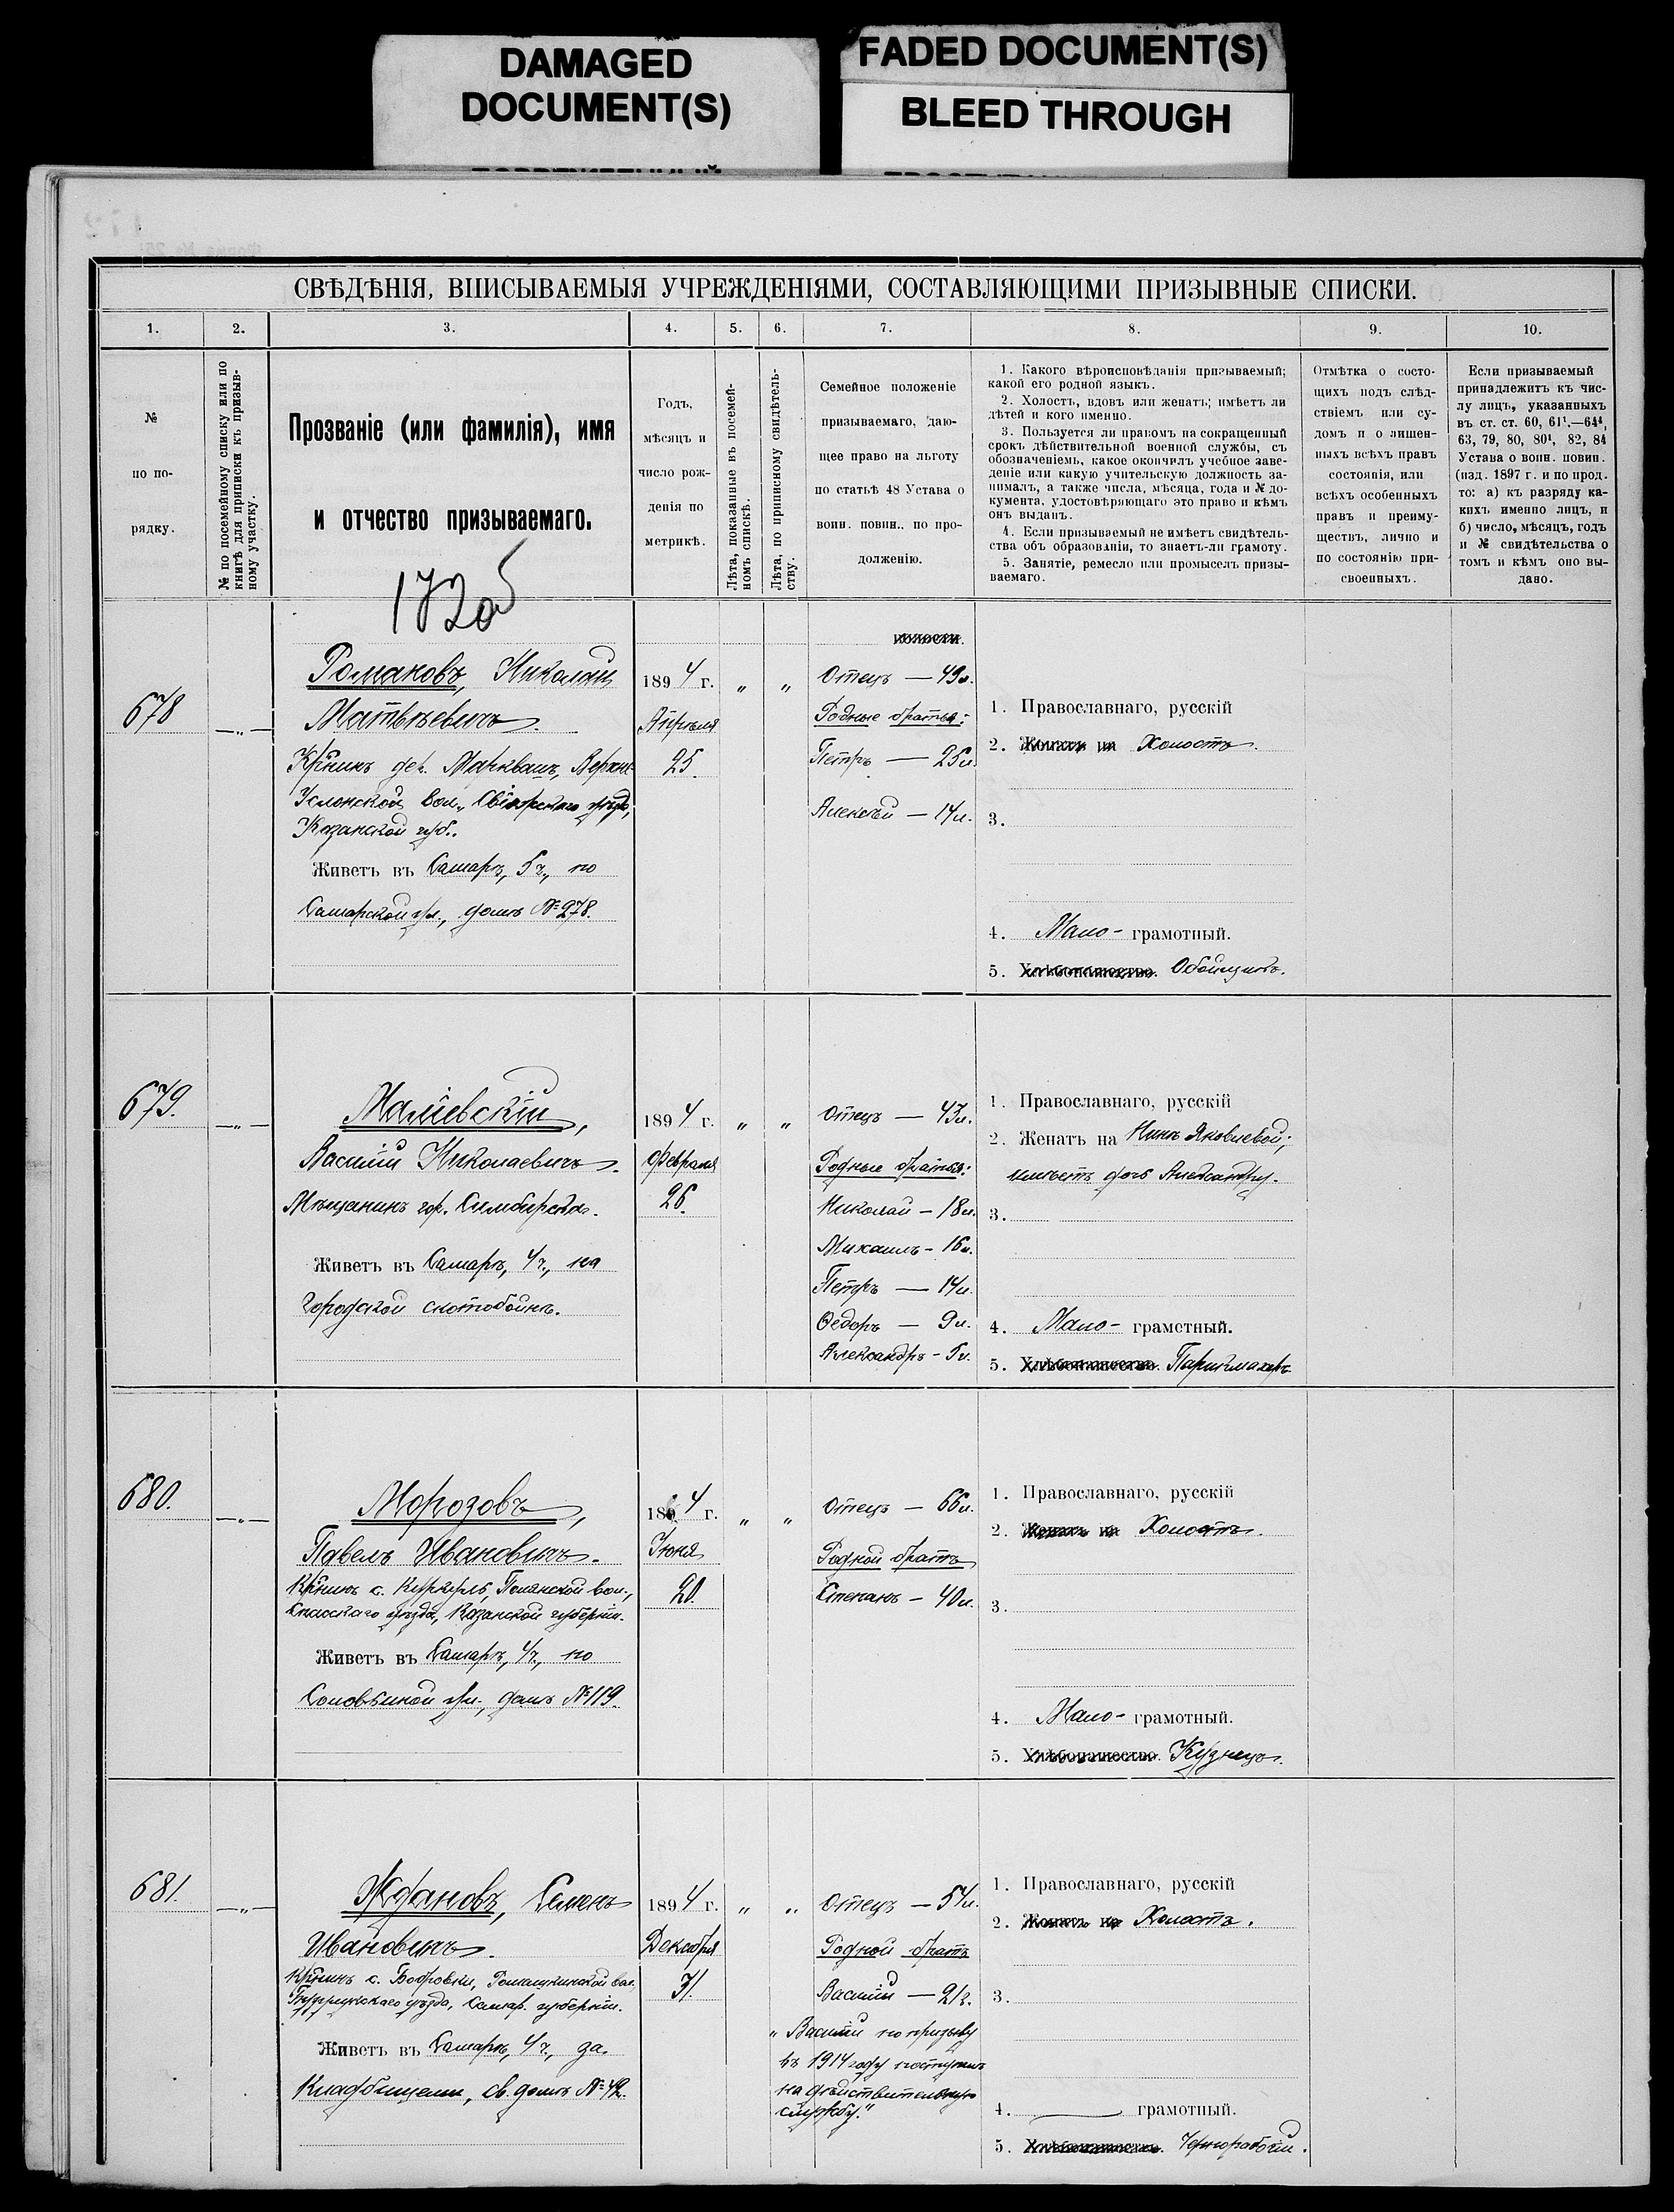 DAMAGED
DOCUMENT(S)
FADED DOCUMENT(S)
BLEED THROUGH
СВѢДѢНІЯ, ВПИСЫВАЕМЫЯ УЧРЕЖДЕНІЯМИ, СОСТАВЛЯЮЩИМИ ПРИЗЫВНЫЕ СПИСКИ.
1.
2.
3.
4.
5.
6.
7.
8.
9.
10.
№
по по-
рядку.
№ по посемейному списку или по
книгѣ для приписки къ призыв-
ному участку.
Прозваніе (или фамилія), имя
и отчество призываемаго.
Годъ,
мѣсяцъ и
число рож-
денія по
метрикѣ.
Лѣта, показанные въ посемей-
номъ спискѣ.
Лѣта, по приписному свидѣтель-
ству.
Семейное положеніе
призываемаго, даю-
щее право на льготу
по статьѣ 48 Устава о
воин. повин.. по про-
долженію.
1. Какого вѣроисповѣданія призываемый;
какой его родной языкъ.
2. Холостъ, вдовъ или женатъ; имѣетъ ли
дѣтей и кого именно.
3. Пользуется ли правомъ на сокращенный
срокъ дѣйствительной военной службы, съ
обозначеніемъ, какое окончилъ учебное заве-
деніе или какую учительскую должность за-
нималъ, а также числа, мѣсяца, года и № до-
кумента, удостовѣряющаго это право и кѣмъ
онъ выданъ.
4. Если призываемый не имѣетъ свидѣтель-
ства объ образованіи, то знаетъ-ли грамоту.
5. Занятіе, ремесло или промыселъ призы-
ваемаго.
Отмѣтка о состо-
щихъ подъ слѣд-
ствіемъ или су-
домъ и о лишен-
ныхъ всѣхъ правъ
состоянія, или
всѣхъ особенныхъ
правъ и преиму-
ществъ, лично и
по состоянію при-
своенныхъ.
Если призываемый
принадлежитъ къ чис-
лу лицъ, указанныхъ
въ ст. ст. 60, 61¹.—64⁴,
63, 79, 80, 80¹, 82, 84
Устава о воин. повин.
(изд. 1897 г. и по прод.
то: а) къ разряду ка-
кихъ именно лицъ, и
б) число, мѣсяцъ, годъ
и № свидѣтельства о
томъ и кѣмъ оно вы-
дано.
172об
678
—„—
Романовъ, Николай
Матвѣевичъ.
Кр̃нинъ дер. Маркваш, Верхне-
Услонской вол., Свіяжскаго уѣзда,
Казанской губ..
Живетъ въ Самарѣ, 5 ч., по
Самарской ул., домъ №278.
1894 г.
Апрѣля
25.
„
„
Отецъ — 49 л.
Родные братья:
Петръ — 25 л.
Алексѣй — 14 л.
1. Православнаго, русскій
2. Женатъ на Холостъ.
3.
4. Мало- грамотный.
5. Хлѣбопашество. Обойщикъ.
679.
—„—
Маліевскій,
Василій Николаевичъ.
Мѣщанинъ гор. Симбирска.
Живетъ въ Самарѣ, 4 ч., на
городской скотобойнѣ.
1894 г.
Февраля
26.
„
„
Отецъ — 43 л.
Родные братья:
Николай — 18 л.
Михаилъ - 16 л.
Петръ — 14 л.
Ѳедоръ — 9 л.
Александръ - 5 л.
1. Православнаго, русскій
2. Женатъ на Нинѣ Яковлевой;
имѣетъ дочь Александру.
3.
4. Мало- грамотный.
5. Хлѣбопашество. Парикмахеръ
680.
—„—
Морозовъ,
Павелъ Ивановичъ.
Спасскаго уѣзда, Казанской губерніи.
Живетъ въ Самарѣ, 4 ч., по
Соловьиной ул., домъ №119.
1894 г.
Іюня
20.
„
„
Отецъ — 66 л.
Родной братъ
Степанъ — 40 л.
1. Православнаго, русскій
2. Женатъ на Холостъ.
3.
4. Мало- грамотный.
5. Хлѣбопашество. Кузнецъ.
681.
—„—
Ждановъ, Семенъ
Ивановичъ.
Кр̃нинъ с. Бобровки, Ромашкинской вол.
Бузулукскаго уѣзда, Самар. губерніи.
Живетъ въ Самарѣ, 4 ч., за
Кладбищемъ, св. домъ №42.
1894 г.
Декабря
31.
„
„
Отецъ — 54 л.
Родной братъ
Василій — 21 г.
„Василій по призыву
въ 1914 году поступилъ
на дѣйствительную
службу."
1. Православнаго, русскій
2. Женатъ на Холостъ.
3.
4. — грамотный.
5. Хлѣбопашество. Чернорабочій.